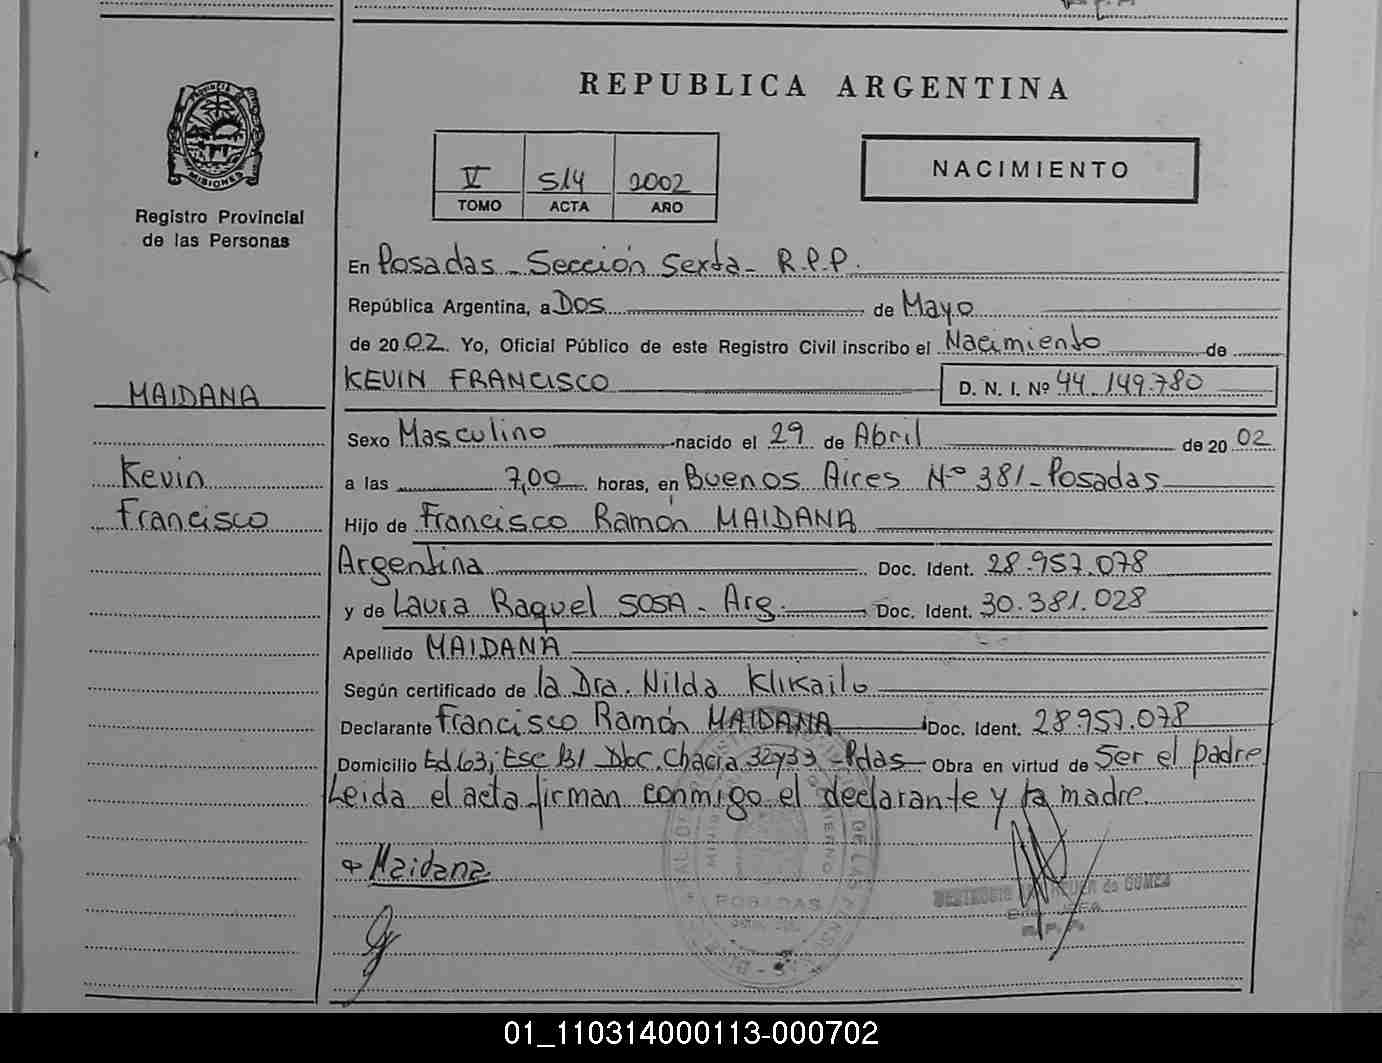 REPUBLICA ARGENTINA
PROVINCIA DE
MISIONES
Registro Provincial
de las Personas
V 514 2002
TOMO ACTA AÑO
NACIMIENTO
En Posadas - Sección Sexta - R.P.P.
República Argentina, a Dos de Mayo
de 2002. Yo, Oficial Público de este Registro Civil inscribo el Nacimiento de
KEVIN FRANCISCO D. N. I. Nº 44.149.780
MAIDANA
Kevin
Francisco
Sexo Masculino nacido el 29 de Abril de 2002
a las 7,00 horas, en Buenos Aires Nº 381 - Posadas
Hijo de Francisco Ramón MAIDANA
Argentina Doc. Ident. 28.957.078
y de Laura Raquel SOSA - Arg. Doc. Ident. 30.381.028
Apellido MAIDANA
Según certificado de la Dra. Nilda Klikailo
Declarante Francisco Ramón MAIDANA Doc. Ident. 28.957.078
Domicilio Ed 63, Esc B1 Chacra 32y33 - Pdas Obra en virtud de Ser el padre
Leida el acta firman conmigo el declarante y la madre
Maidana
POSADAS
de GOMEZ
R.P.P.
01_110314000113-000702